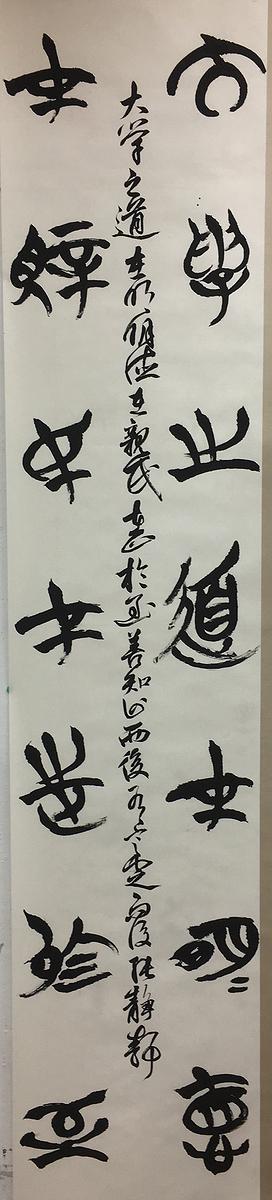 大學之道在明〓德
大學之道在明明德在親民在止於至善知止而後有定定而後能靜靜
在親民在止於至